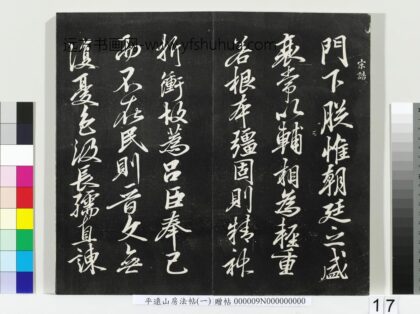 宗誥
門下朕惟朝廷之盛
衰常以輔相為輕重
若根本彊固則精神
折衝故蒍呂臣奉己
而不在民則晉文無
復憂色汲長孺直諫
平遠山房法帖(一) 贈帖 000009N000000000
17